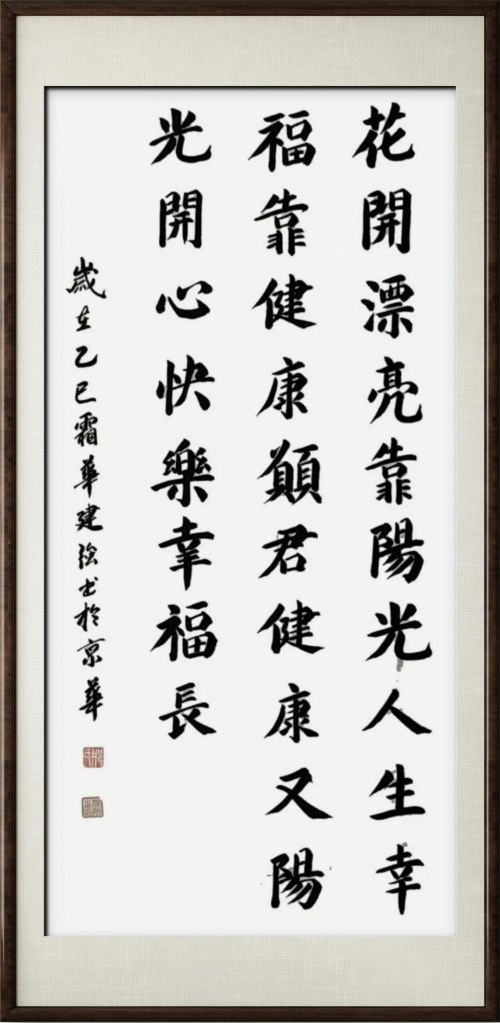 花開漂亮靠陽光人生幸
福靠健康願君健康又陽
光開心快樂幸福長
歲在乙巳霜華建強书於京華